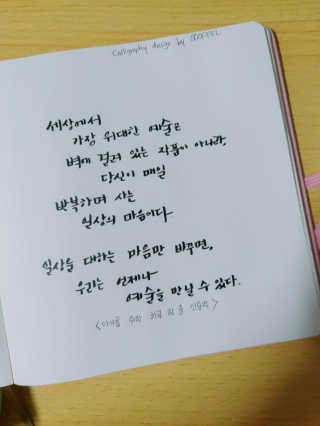 Calligraphy design by
세상에서
가장 위대한 예술은
벽에 걸려 있는 작품이 아니라,
당신이 매일
반복하며 사는
일상의 마음이다.
일상을 대하는 마음만 바꾸면,
우리는 언제나
예술을 만날 수 있다.